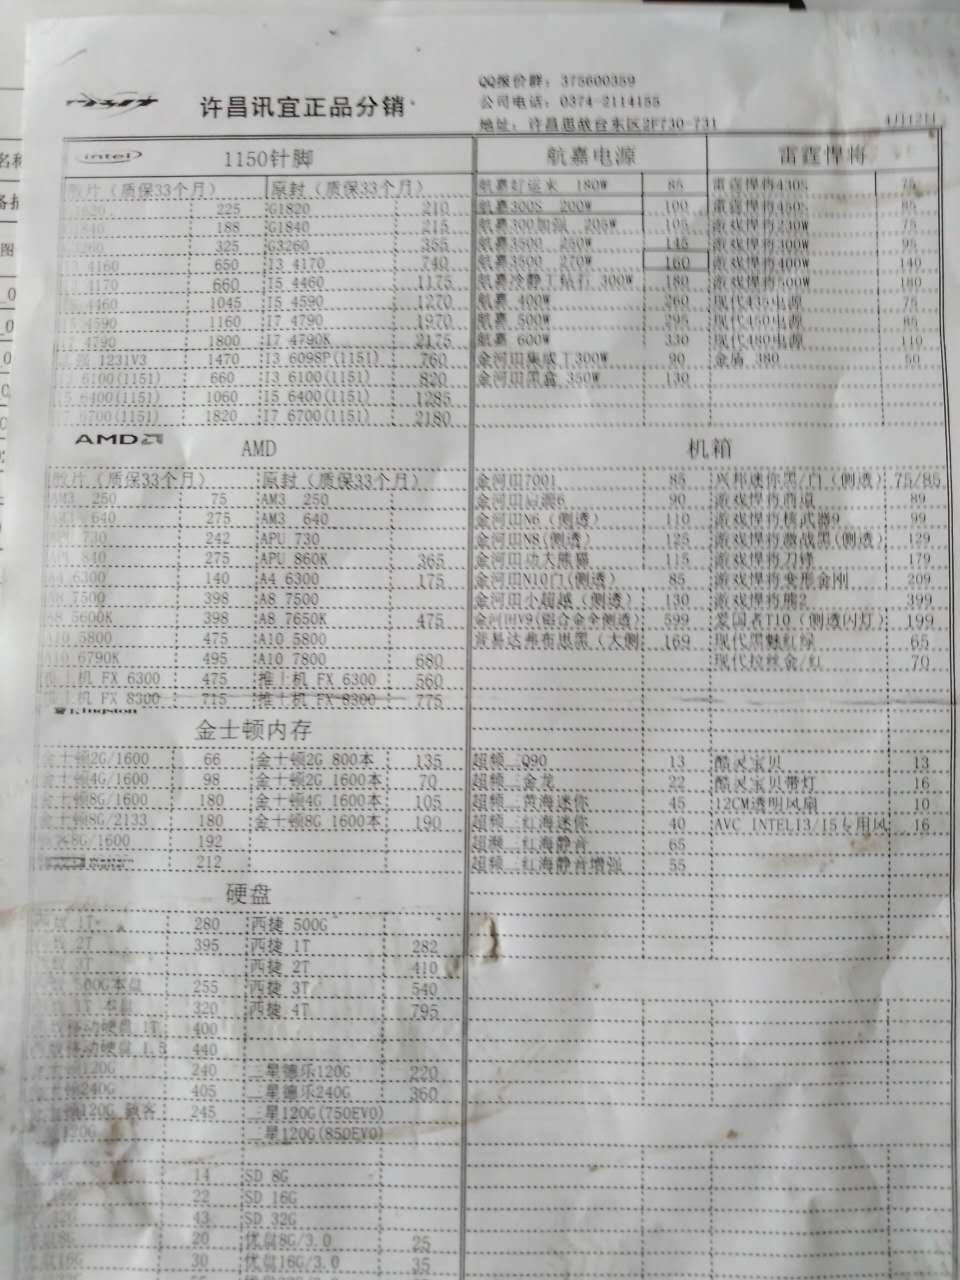 QQ报价群: 375600359
许昌讯宜正品分销
公司电话: 0374-2114155
地址: 许昌思故台东区2F730-731
4月12日
intel 1150针脚 航嘉电源 雷霆悍将
散片（质保33个月） 原封（质保33个月） 航嘉好运来 180W 85 雷霆悍将430S 75
G1820 225 G1820 210 航嘉300S 200W 100 雷霆悍将450S 85
G1840 188 G1840 215 航嘉300加强 205W 105 游戏悍将230W 75
G3260 325 G3260 355 航嘉3500 250W 145 游戏悍将300W 95
I3 4160 650 I3 4170 740 航嘉3500 270W 160 游戏悍将400W 140
I3 4170 660 I5 4460 1175 航嘉冷静王钻石 300W 180 游戏悍将500W 180
I5 4460 1045 I5 4590 1270 航嘉 400W 260 现代435电源 75
I5 4590 1160 I7 4790 1970 航嘉 500W 295 现代450电源 85
I7 4790 1800 I7 4790K 2175 航嘉 600W 330 现代480电源 110
1231V3 1470 I3 6098P(1151) 760 金河田集成王300W 90 金盾 380 50
I3 6100(1151) 660 I3 6100(1151) 820 金河田黑盒 350W 130
I5 6400(1151) 1060 I5 6400(1151) 1285
I7 6700(1151) 1820 I7 6700(1151) 2180
AMD AMD 机箱
散片（质保33个月） 原封（质保33个月） 金河田7001 85 兴邦迷你黑/白（侧透） 75/85
AM3 250 75 AM3 250 金河田启源6 90 游戏悍将商道 89
AM3 640 275 AM3 640 金河田N6（侧透） 110 游戏悍将核武器9 99
APU 730 242 APU 730 金河田N8(侧透) 125 游戏悍将激战黑(侧透) 129
APU 840 275 APU 860K 365 金河田功夫熊猫 115 游戏悍将刀锋 179
A4 6300 140 A4 6300 175 金河田N10白(侧透) 85 游戏悍将变形金刚 209
A8 7500 398 A8 7500 金河田小超越（侧透） 130 游戏悍将熊2 399
A8 5600K 398 A8 7650K 475 金河田V9(铝合金全侧透) 599 爱国者T10（侧透闪灯） 199
A10 5800 475 A10 5800 弗布思黑（大侧 169 现代黑魅红绿 65
A10 6790K 495 A10 7800 680 现代拉丝金/红 70
推土机 FX 6300 475 推土机 FX 6300 560
推土机 FX 8300 715 推土机 FX 8300 775
Kingston 金士顿内存
金士顿2G/1600 66 金士顿2G 800本 135 超频三Q90 13 酷灵宝贝 13
金士顿4G/1600 98 金士顿2G 1600本 70 超频三金龙 22 酷灵宝贝带灯 16
金士顿8G/1600 180 金士顿4G 1600本 105 超频三黄海迷你 45 12CM透明风扇 10
金士顿8G/2133 180 金士顿8G 1600本 190 超频三红海迷你 40 AVC INTEL13/15专用风 16
8G/1600 192 超频三红海静音 65
212 超频三红海静音增强 55
硬盘
1T 280 西捷 500G
2T 395 西捷 1T 282
西捷 2T 410
500G本盘 255 西捷 3T 540
320 西捷 4T 795
移动硬盘 1T 400
移动硬盘 1.5 440
120G 240 三星德乐120G 220
240G 405 三星德乐240G 360
120G 骇客 245 三星120G(750EVO)
120G 三星120G(850EVO)
14 SD 8G
22 SD 16G
43 SD 32G
8G 20 优盘8G/3.0 25
16G 30 优盘16G/3.0 35